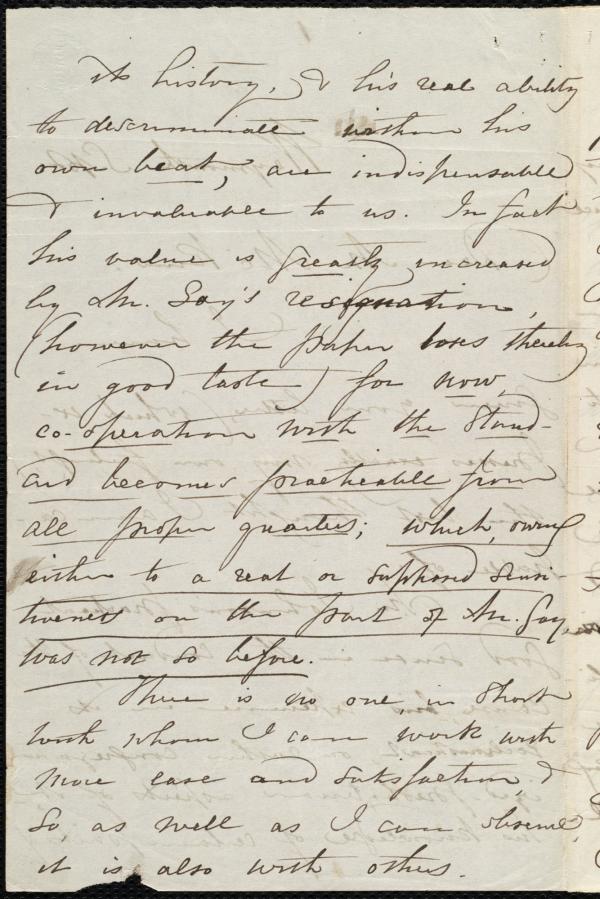 its history, & his real ability
to discriminate within his
own beat, are indispensable
& invaluable to us. In fact
his value is greatly increased
by Mr. Gay's resignation,
(however the paper loses thereby
in good taste) for now,
co-operation with the Stand-
ard becomes practicable from
all proper quarters; which, owing
either to a real or supposed sensi-
tiveness on the part of Mr. Gay,
was not so before.
There is no one, in short
with whom I can work with
more ease and satisfaction, &
so, as well as I can observe,
it is also with others.